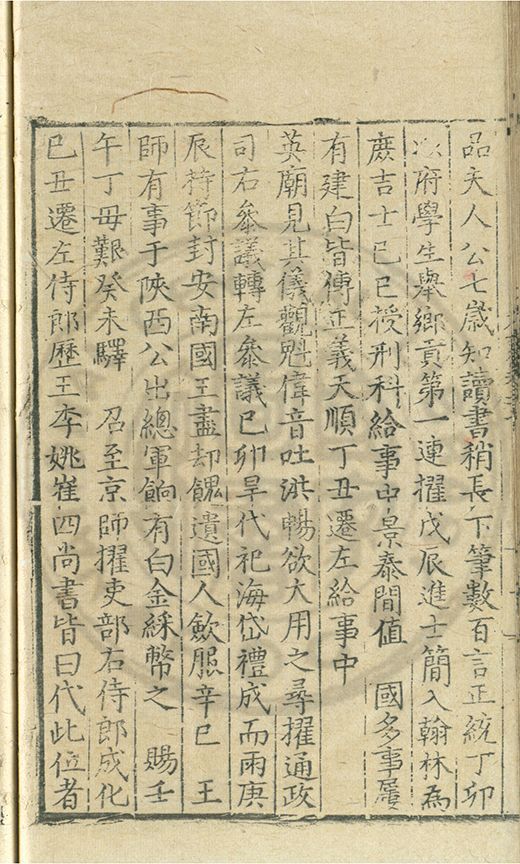 品夫人公七歲知讀書稍長下筆數百言正統丁卯
府學生舉鄉貢第一連擢戊辰進士簡入翰林為
庶吉士己巳授刑科給事中景泰間值　國多事屢
有建白皆傅正義天順丁丑遷左給事中
英廟見其儀觀魁偉音吐洪暢欲大用之尋擢通政
司右叅議轉左叅議己卯旱代祀海岱禮成而雨庚
辰持節封安南國王盡却餽遺國人歎服辛巳　王
師有事于陝西公出總軍餉有白金綵幣之　賜壬
午丁母艱癸未驛　召至京師擢吏部右侍郎成化
己丑遷左侍郎歷王李姚崔四尚書皆曰代此位者